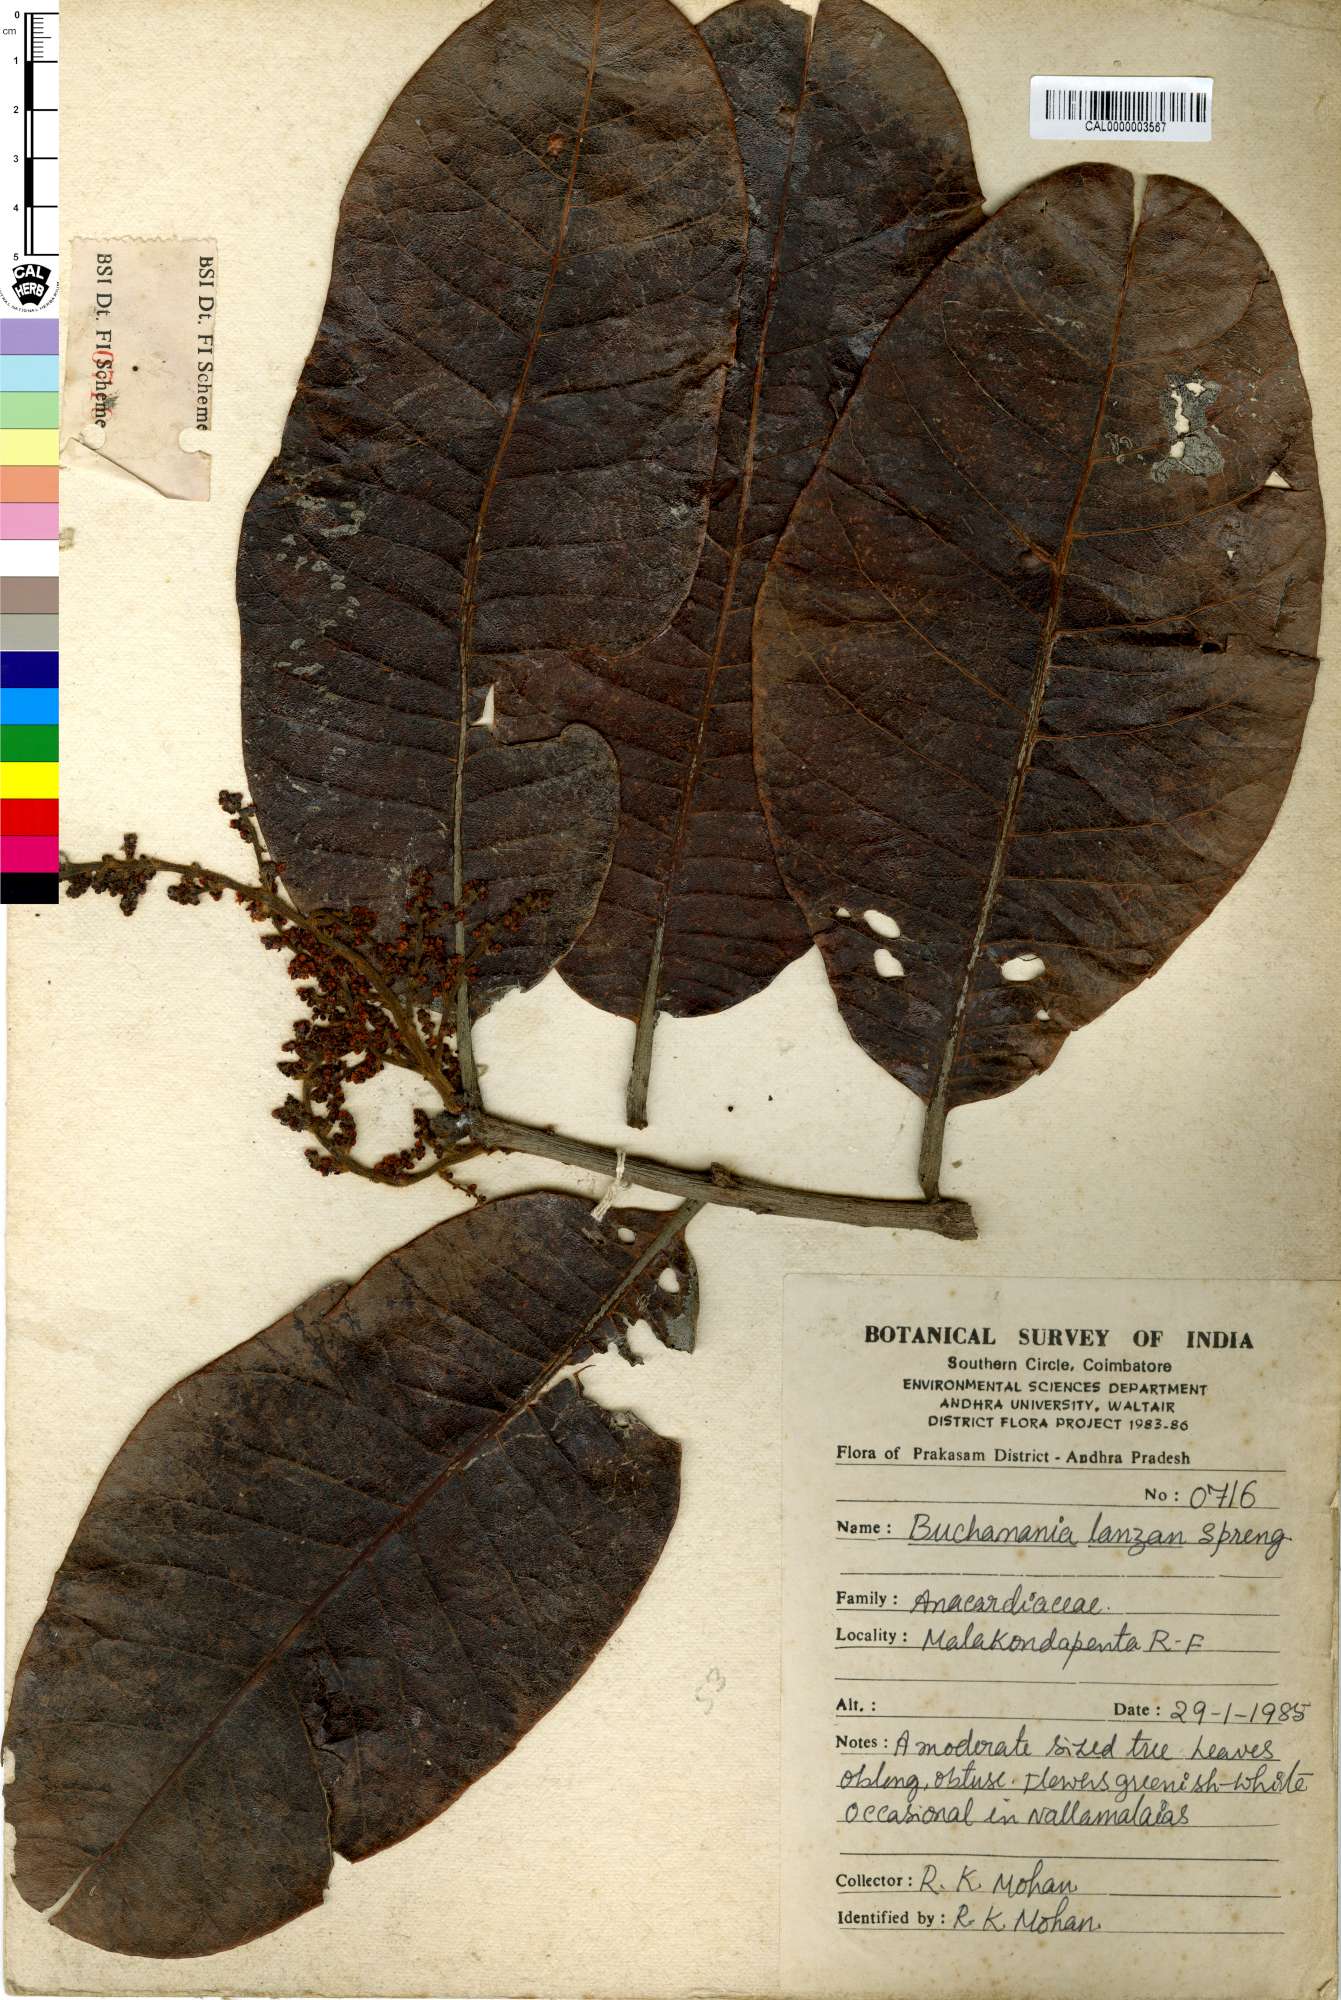 0
cm
1
2
3
4
5
CAL
HERB
CAL0000003567
BSI Dt. Fl Scheme
BSI Dt. Fl Scheme
53
BOTANICAL SURVEY OF INDIA
Southern Circle, Coimbatore
ENVIRONMENTAL SCIENCES DEPARTMENT
ANDHRA UNIVERSITY, WALTAIR
DISTRICT FLORA PROJECT 1983-86
Flora of Prakasam District - Andhra Pradesh
No : 0716
Name : Buchanania lanzan Spreng
Family : Anacardiaceae.
Locality : Malakondapenta R-F
Alt. : Date : 29-1-1985
Notes : A moderate sized tree Leaves
oblong, obtuse. Flowers greenish-white
occasional in Nallamalaias
Collector : R. K. Mohan
Identified by : R. K. Mohan.